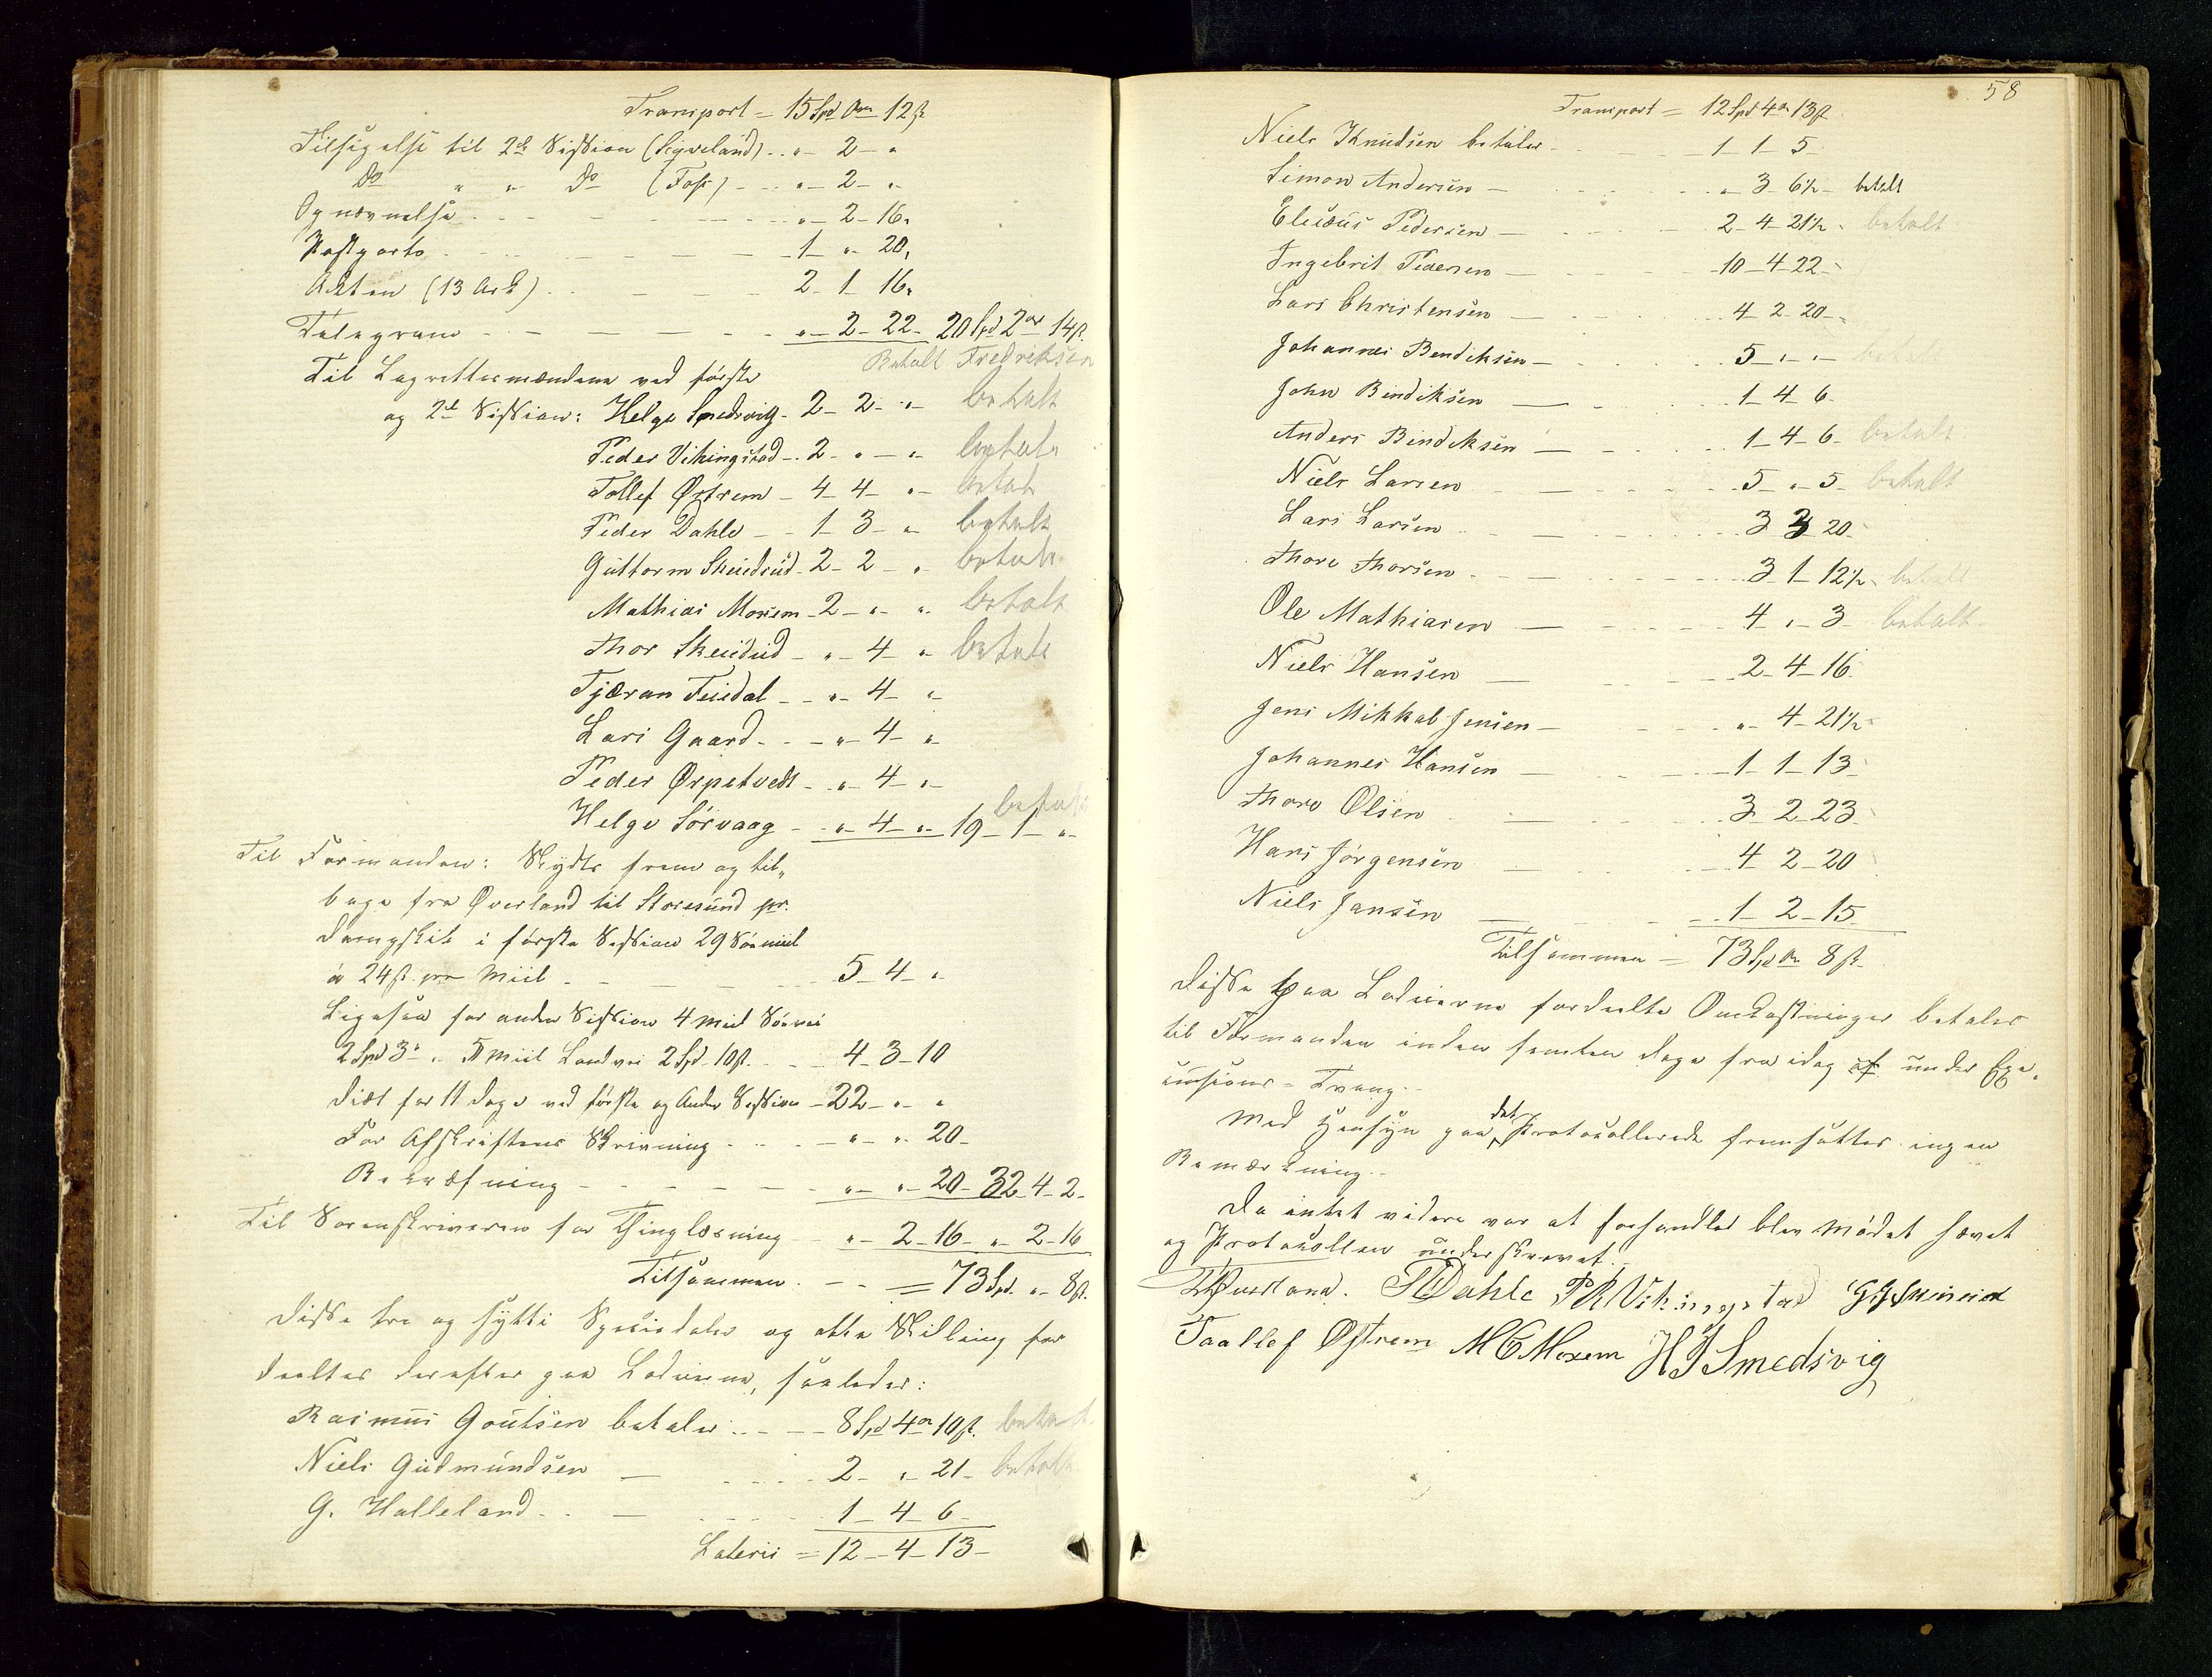 Transport = 15 Spd 0 Ort 12 ß
Tilsigelse til 2den Session (Liqveland) " 2 "
Do " " Do (Foss) " 2 "
Opnævnelse " 2 16
Postporto 1 " 20
Akten (13 Ark) 2 1 16
Telegram " 2 22 20 Spd 2 Ort 14 ß
Betalt Fredriksen
Til Lagrettesmændene ved første
og 2den Session: Helge Smedsvig 2 2 " betalt
Peder Vikingstad 2 " " betalt
Tollef Østrem 4 4 " betalt
Peder Dahle 1 3 " betalt
Guttorm Skeidsud 2 2 " betalt
Mathias Moxem 2 " " betalt
Thor Skeidsud " 4 " betalt
Tjæran " 4 "
Lars Gaard " 4 "
Peder Ørpetvedt " 4 "
betalt
Helge Sørvaag " 4 " 19 1 "
Til Formanden: Skyds frem og til-
bage fra Øverland til Storesund pr.
Dampskib i første Session 29 Sømiil
á 24 ß pr Miil 5 4 "
Ligesaa for anden Session 4 Miil Søvei
2 Spd 3 " 5 Miil Landvei 2 Spd 10 ß 4 3 10
Diæt for 11 Dage ved første og Anden Session 22 " "
For Afskriftens Skrivning " " 20
Bekræftning " " 20 32 4 2
Til Sorenskriveren for Thinglæsning " 2 16 " 2 16
Tilsammen = 73 Spd. " 8 ß
Disse tre og sytti Speciedaler og otte Skilling for
deeltes derefter paa Lodeierne, saaledes:
Rasmus Goutsen betaler 8 Spd 4 Ort 10 ß betalt
Niels Gudmundsen 2 " 21 betalt
G. Halleland 1 4 6
Lateris = 12 4 13
58
Transport = 12 Spd 4 Ort 13 ß
Niels Knudsen betaler 1 1 5
Simon Andersen " 3 6½ betalt
Elisæus Pedersen 2 4 21½ betalt
Ingebrit Pedersen 10 4 22
Lars Christensen 4 2 20
Johannes Bendiksen 5 " " betalt
John Bendiksen 1 4 6
Anders Bendiksen 1 4 6 betalt
Niels Larsen 5 " 5 betalt
Lars Larsen 3 3 20
Thore Thorsen 3 1 12½ betalt
Ole Mathiasen 4 " 3 betalt
Niels Hansen 2 4 16
Jens Mikkal Jensen " 4 21½
Johannes Hansen 1 1 13
Thore Olsen 3 2 23
Hans Jørgensen 4 2 20
Niels Jansen 1 2 15
Tilsammen = 73 Spd 0 Ort 8 ß
Disse paa Lodeierne fordeelte Omkostninger betales
til Formanden inden femten Dage fra idag af under Exe-
cutions-Tvang.
Med Hensyn paa det Protocollerede fremsattes ingen
Bemærkning.
Da intet videre var at forhandle blev Mødet hævet
og Protocollen underskrevet.
Øverland. Dahle P R Vikingstad
Taallef Østrem M E Moxem H J Smedsvig